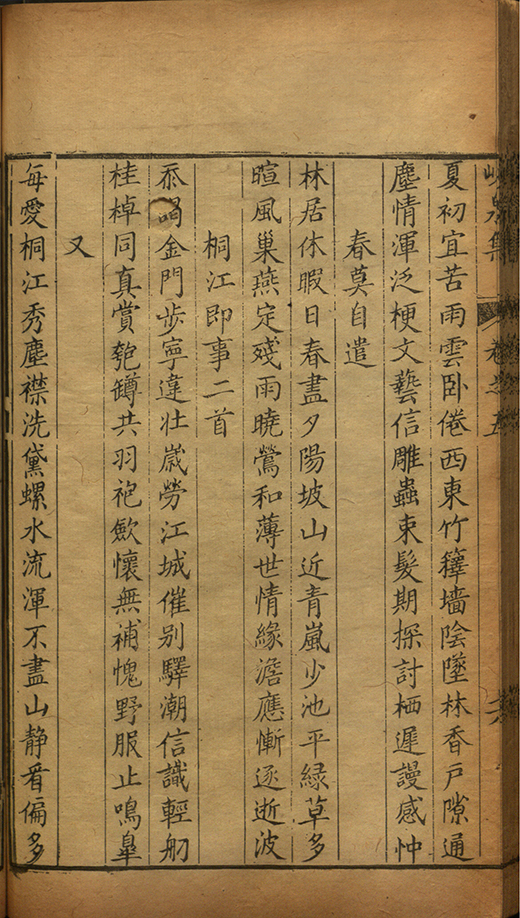 集 卷之五
夏初宜苦雨雲卧倦西東竹籜墻陰墜林香戶隙通
塵情渾泛梗文藝信雕蟲束髮期探討栖遲謾感忡
春莫自遣
林居休暇日春盡夕陽坡山近青嵐少池平緑草多
暄風巢燕定殘雨曉鶯和薄世情緣澹應慚逐逝波
桐江即事二首
忝謁金門步寧違壯歳勞江城催别驛潮信識輕舠
桂棹同真賞匏罇共羽袍歉懷無補愧野服止鳴臯
又
每愛桐江秀塵襟洗黛螺水流渾不盡山静看偏多